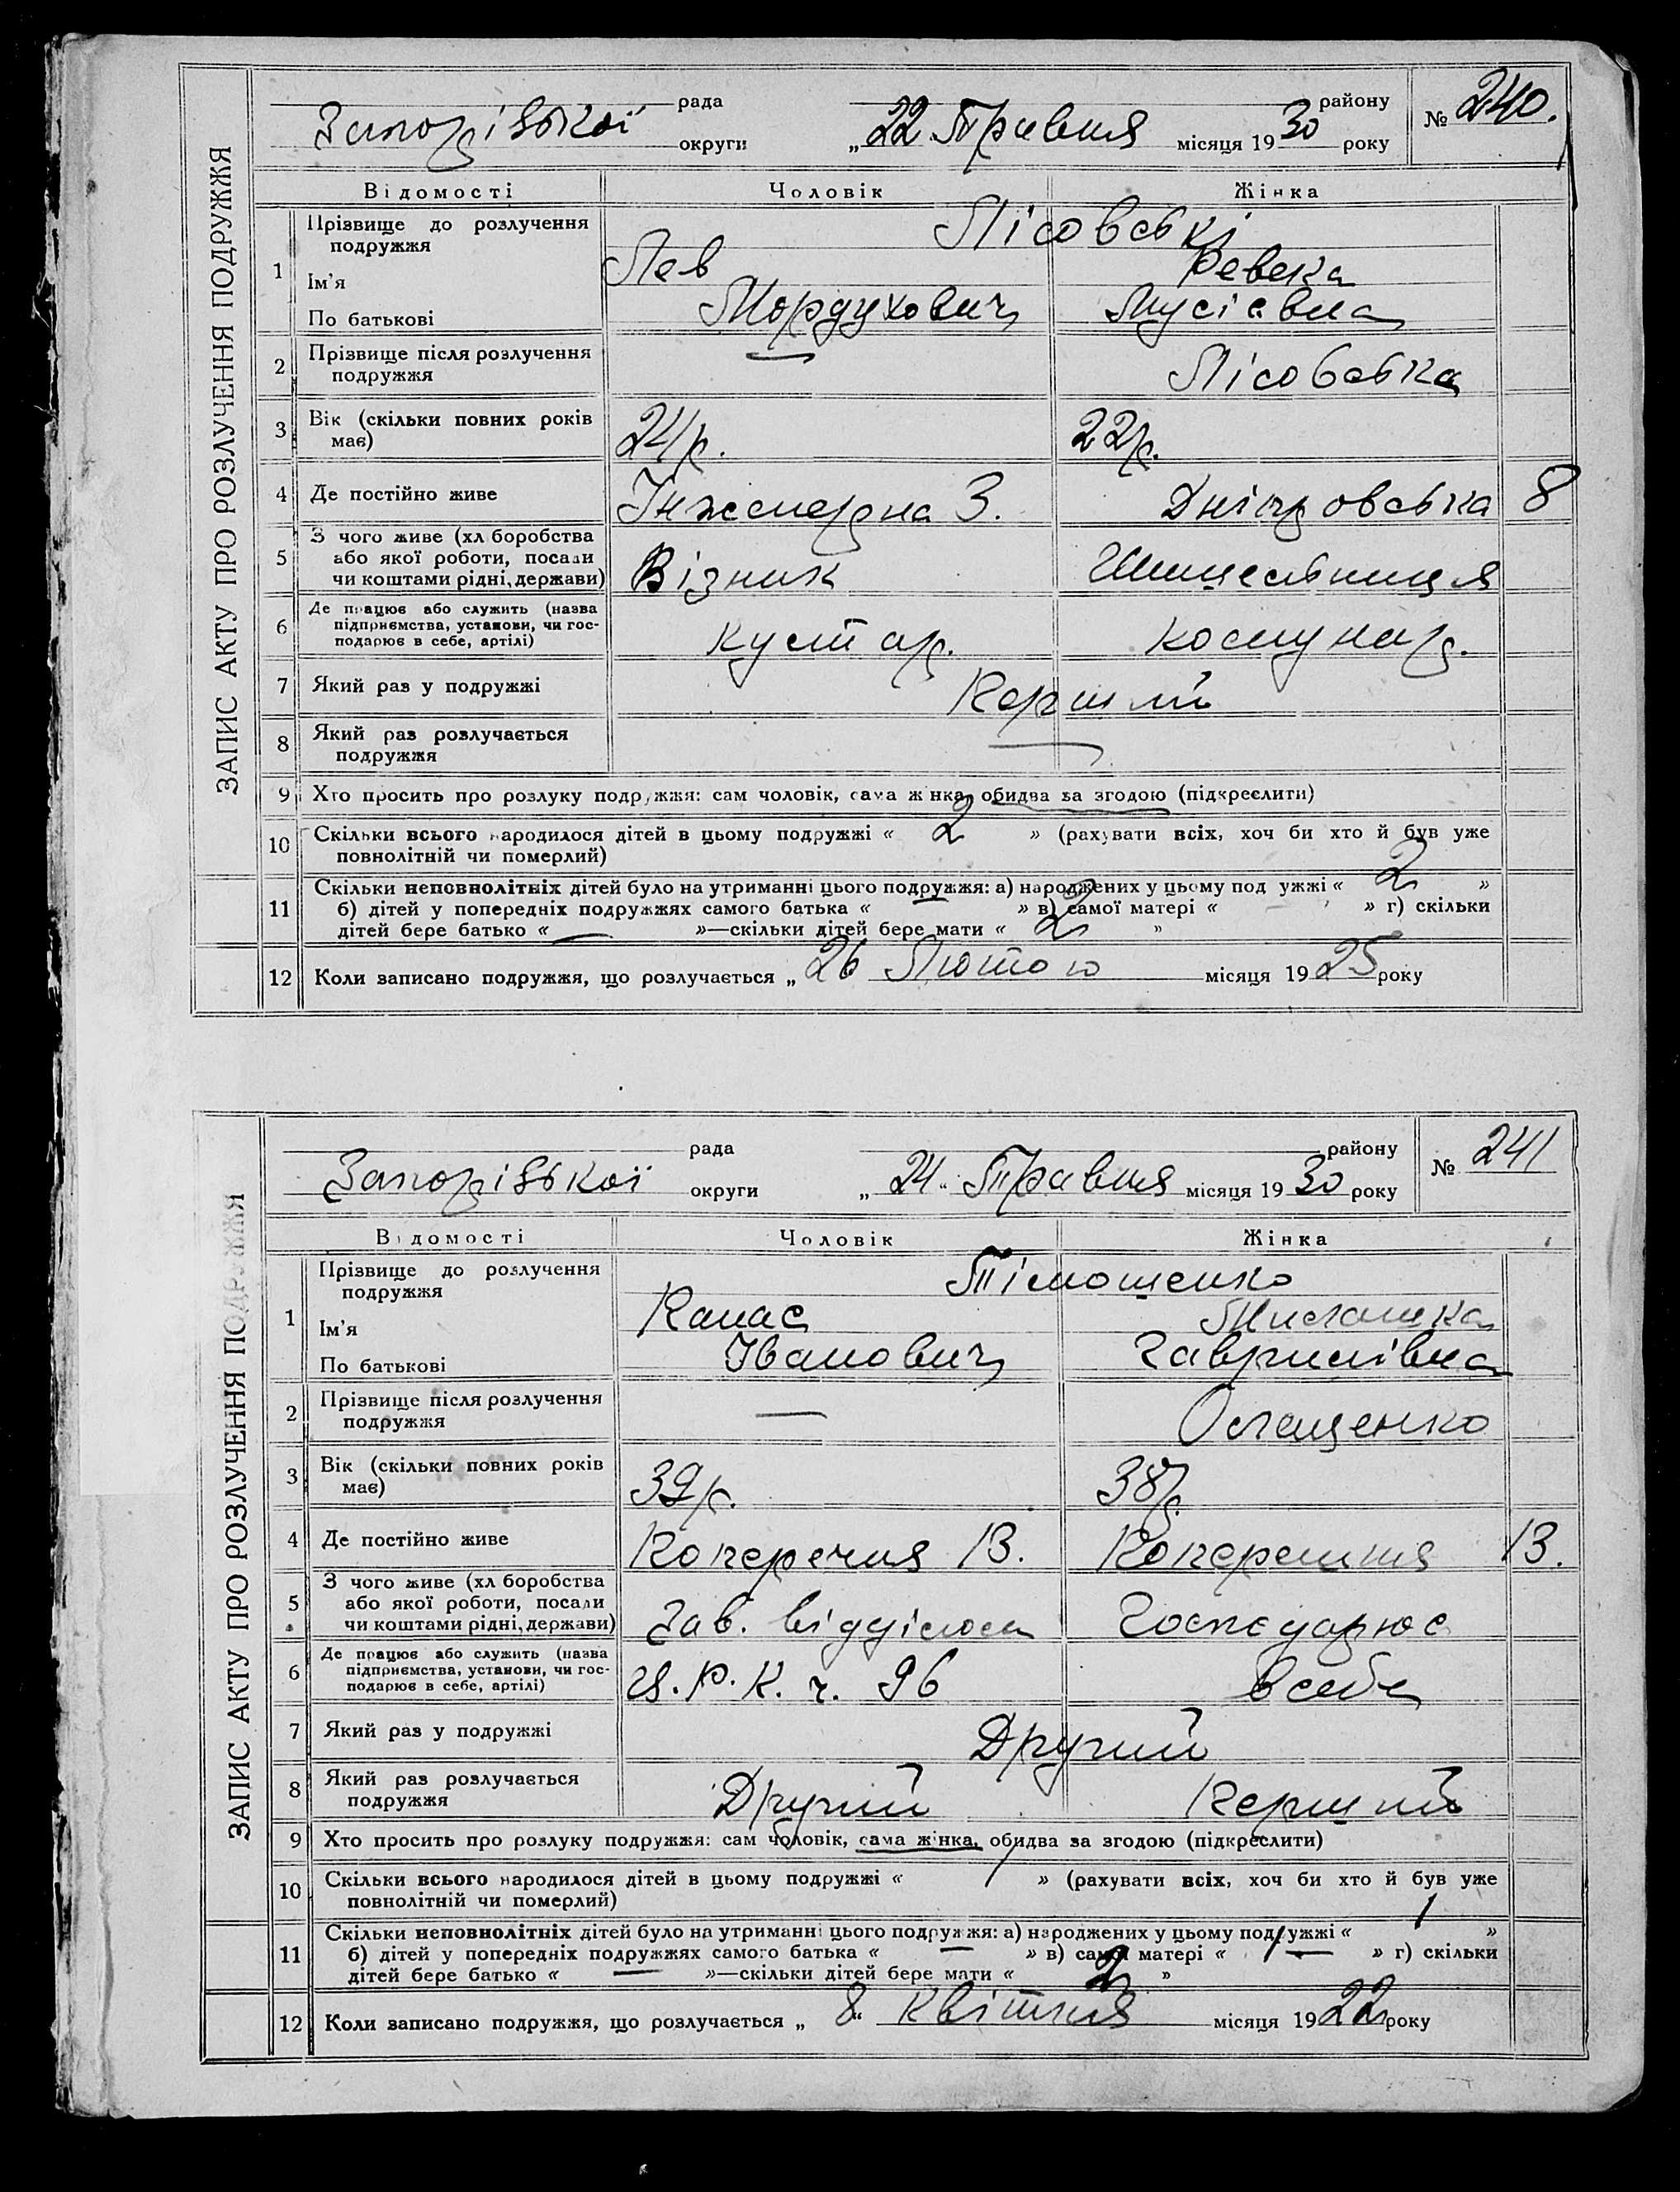 ЗАПИС АКТУ ПРО РОЗЛУЧЕННЯ ПОДРУЖЖЯ
рада району № 240.
Запорізької округи „22 Травня місяця 1930 року
Відомості Чоловік Жінка
1 Прізвище до розлучення подружжя Лісовські
Ім'я Лев Ревека
По батькові Мордухович Мусієвна
2 Прізвище після розлучення
подружжя — Лісовська
3 Вік (скільки повних років
має) 24 р. 22 р.
4 Де постійно живе Інженерна 3. Дніпровська 8
5 З чого живе (хліборобства
або якої роботи, посади
чи коштами рідні, держави) Візник
6 Де працює або служить (назва
підприємства, установи, чи гос-
подарює в себе, артілі) кустар. комунар.
7 Який раз у подружжі Перший
8 Який раз розлучається
подружжя —
9 Хто просить про розлуку подружжя: сам чоловік, сама жінка, обидва за згодою (підкреслити)
10 Скільки всього народилося дітей в цьому подружжі « 2 » (рахувати всіх, хоч би хто й був уже
повнолітній чи померлий)
11 Скільки неповнолітніх дітей було на утриманні цього подружжя: а) народжених у цьому подружжі « 2 »
б) дітей у попередніх подружжях самого батька « — » в) самої матері « — » г) скільки
дітей бере батько « — »—скільки дітей бере мати « 2 »
12 Коли записано подружжя, що розлучається „ 26 Лютого місяця 1925 року
ЗАПИС АКТУ ПРО РОЗЛУЧЕННЯ ПОДРУЖЖЯ
рада району № 241
Запорізької округи „ 24 „ Травня місяця 1930 року
Відомості Чоловік Жінка
1 Прізвище до розлучення
подружжя Тімошенко
Ім'я Панас
По батькові Іванович Гаврилівна
2 Прізвище після розлучення
подружжя — Остащенко
3 Вік (скільки повних років
має) 39 р. 38 р.
4 Де постійно живе Поперечня 13. 13.
5 З чого живе (хліборобства
або якої роботи, посади
чи коштами рідні, держави) Зав. відділом Господарює
6 Де працює або служить (назва
підприємства, установи, чи гос-
подарює в себе, артілі) Р. К. ч. 96 в себе
7 Який раз у подружжі Другий
8 Який раз розлучається
подружжя Другий Перший
9 Хто просить про розлуку подружжя: сам чоловік, сама жінка, обидва за згодою (підкреслити)
10 Скільки всього народилося дітей в цьому подружжі « 1 » (рахувати всіх, хоч би хто й був уже
повнолітній чи померлий)
11 Скільки неповнолітніх дітей було на утриманні цього подружжя: а) народжених у цьому подружжі « 1 »
б) дітей у попередніх подружжях самого батька « — » в) самої матері « 1 — » г) скільки
дітей бере батько « — »—скільки дітей бере мати « 2 »
12 Коли записано подружжя, що розлучається „ 8 „ квітня місяця 1922 року